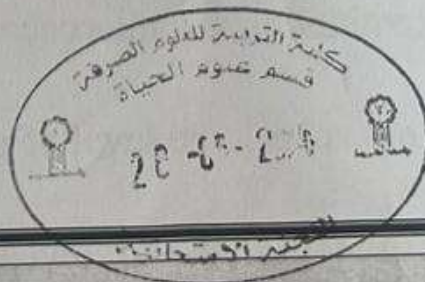 كلية التربية للعلوم الصرفة
قسم علوم الحياة
اللجنة الامتحانية